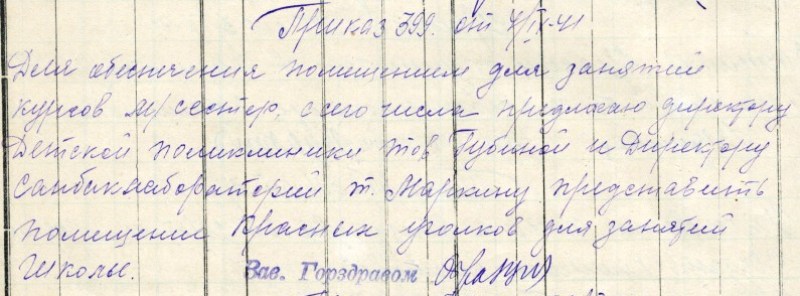 Приказ 399. от 4/IX-41
Для обеспечения помещением для занятий
курсов м/сестер, с сего числа предлагаю директору
Детской поликлиники тов Губиной и Директору
Санбаклабораторий т. Маркину представить
помещение Красных уголков для занятий
школы. Зав. Горздравом